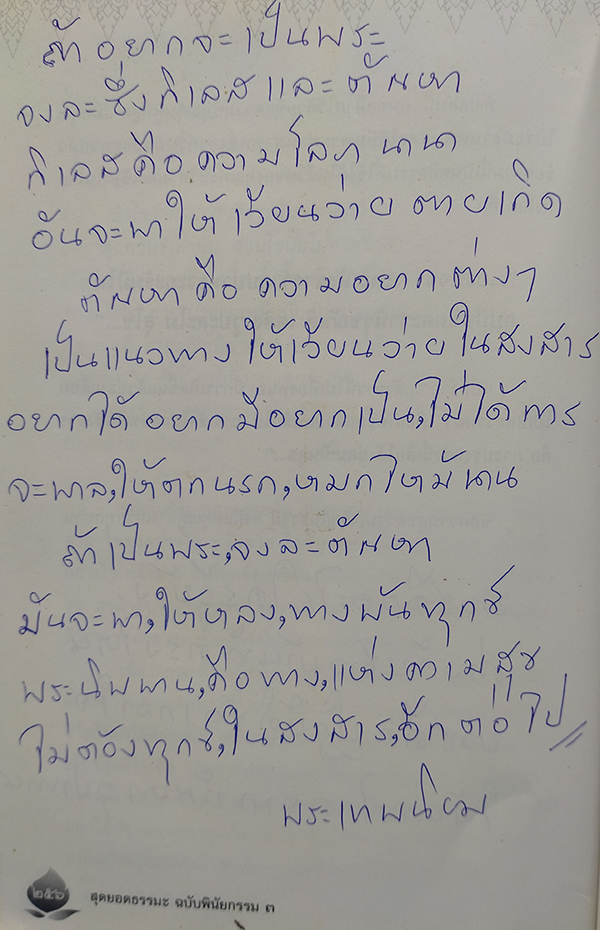 ถ้าอยากจะเป็นพระ
จงละซึ่งกิเลสและตัณหา
กิเลสคือความโลภนานา
อันจะพาให้เวียนว่ายตายเกิด
ตัณหาคือความอยากต่างๆ
เป็นแนวทางให้เวียนว่ายในสงสาร
อยากได้อยากมีอยากเป็น,ไม่ได้การ
จะพาล,ให้ตกนรก,หมกไหม้นาน
ถ้าเป็นพระ,จงละตัณหา
มันจะพา,ให้หลง,ทางพ้นทุกข์
พระนิพพาน,คือทาง,แห่งความสุข
ไม่ต้องทุกข์,ในสงสาร,อีกต่อไป
พระเทพนิยม
๒๕๖ สุดยอดธรรมะ ฉบับพินัยกรรม ๓